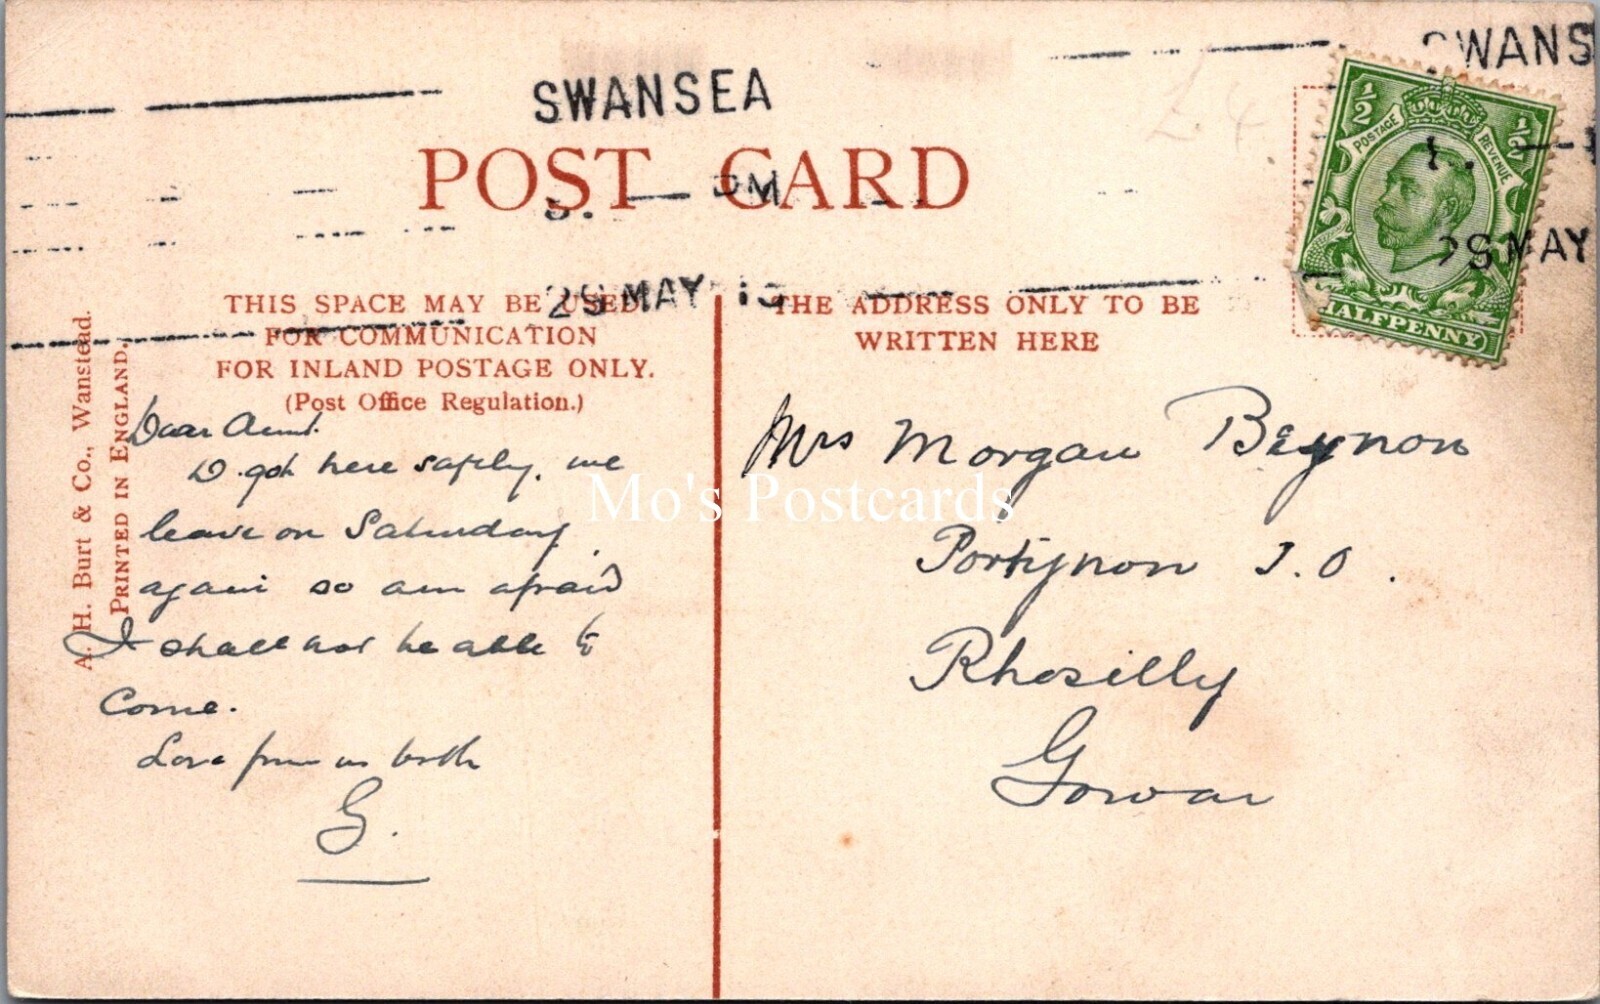 SWANSEA
SWANS
POST CARD
PM
29 MAY 15
29 MAY
1/2 1/2
POSTAGE REVENUE
HALFPENNY
£4
THIS SPACE MAY BE USED
FOR COMMUNICATION
FOR INLAND POSTAGE ONLY.
(Post Office Regulation.)
THE ADDRESS ONLY TO BE
WRITTEN HERE
A. H. Burt & Co., Wanstead.
PRINTED IN ENGLAND.
Dear Aunt.
D. got here safely, we
leave on Saturday
again so am afraid
I shall not be able to
come.
Love from us both
G.
Mrs Morgan Beynon
Portynon
Rhosilly
Gower
Mo's Postcards